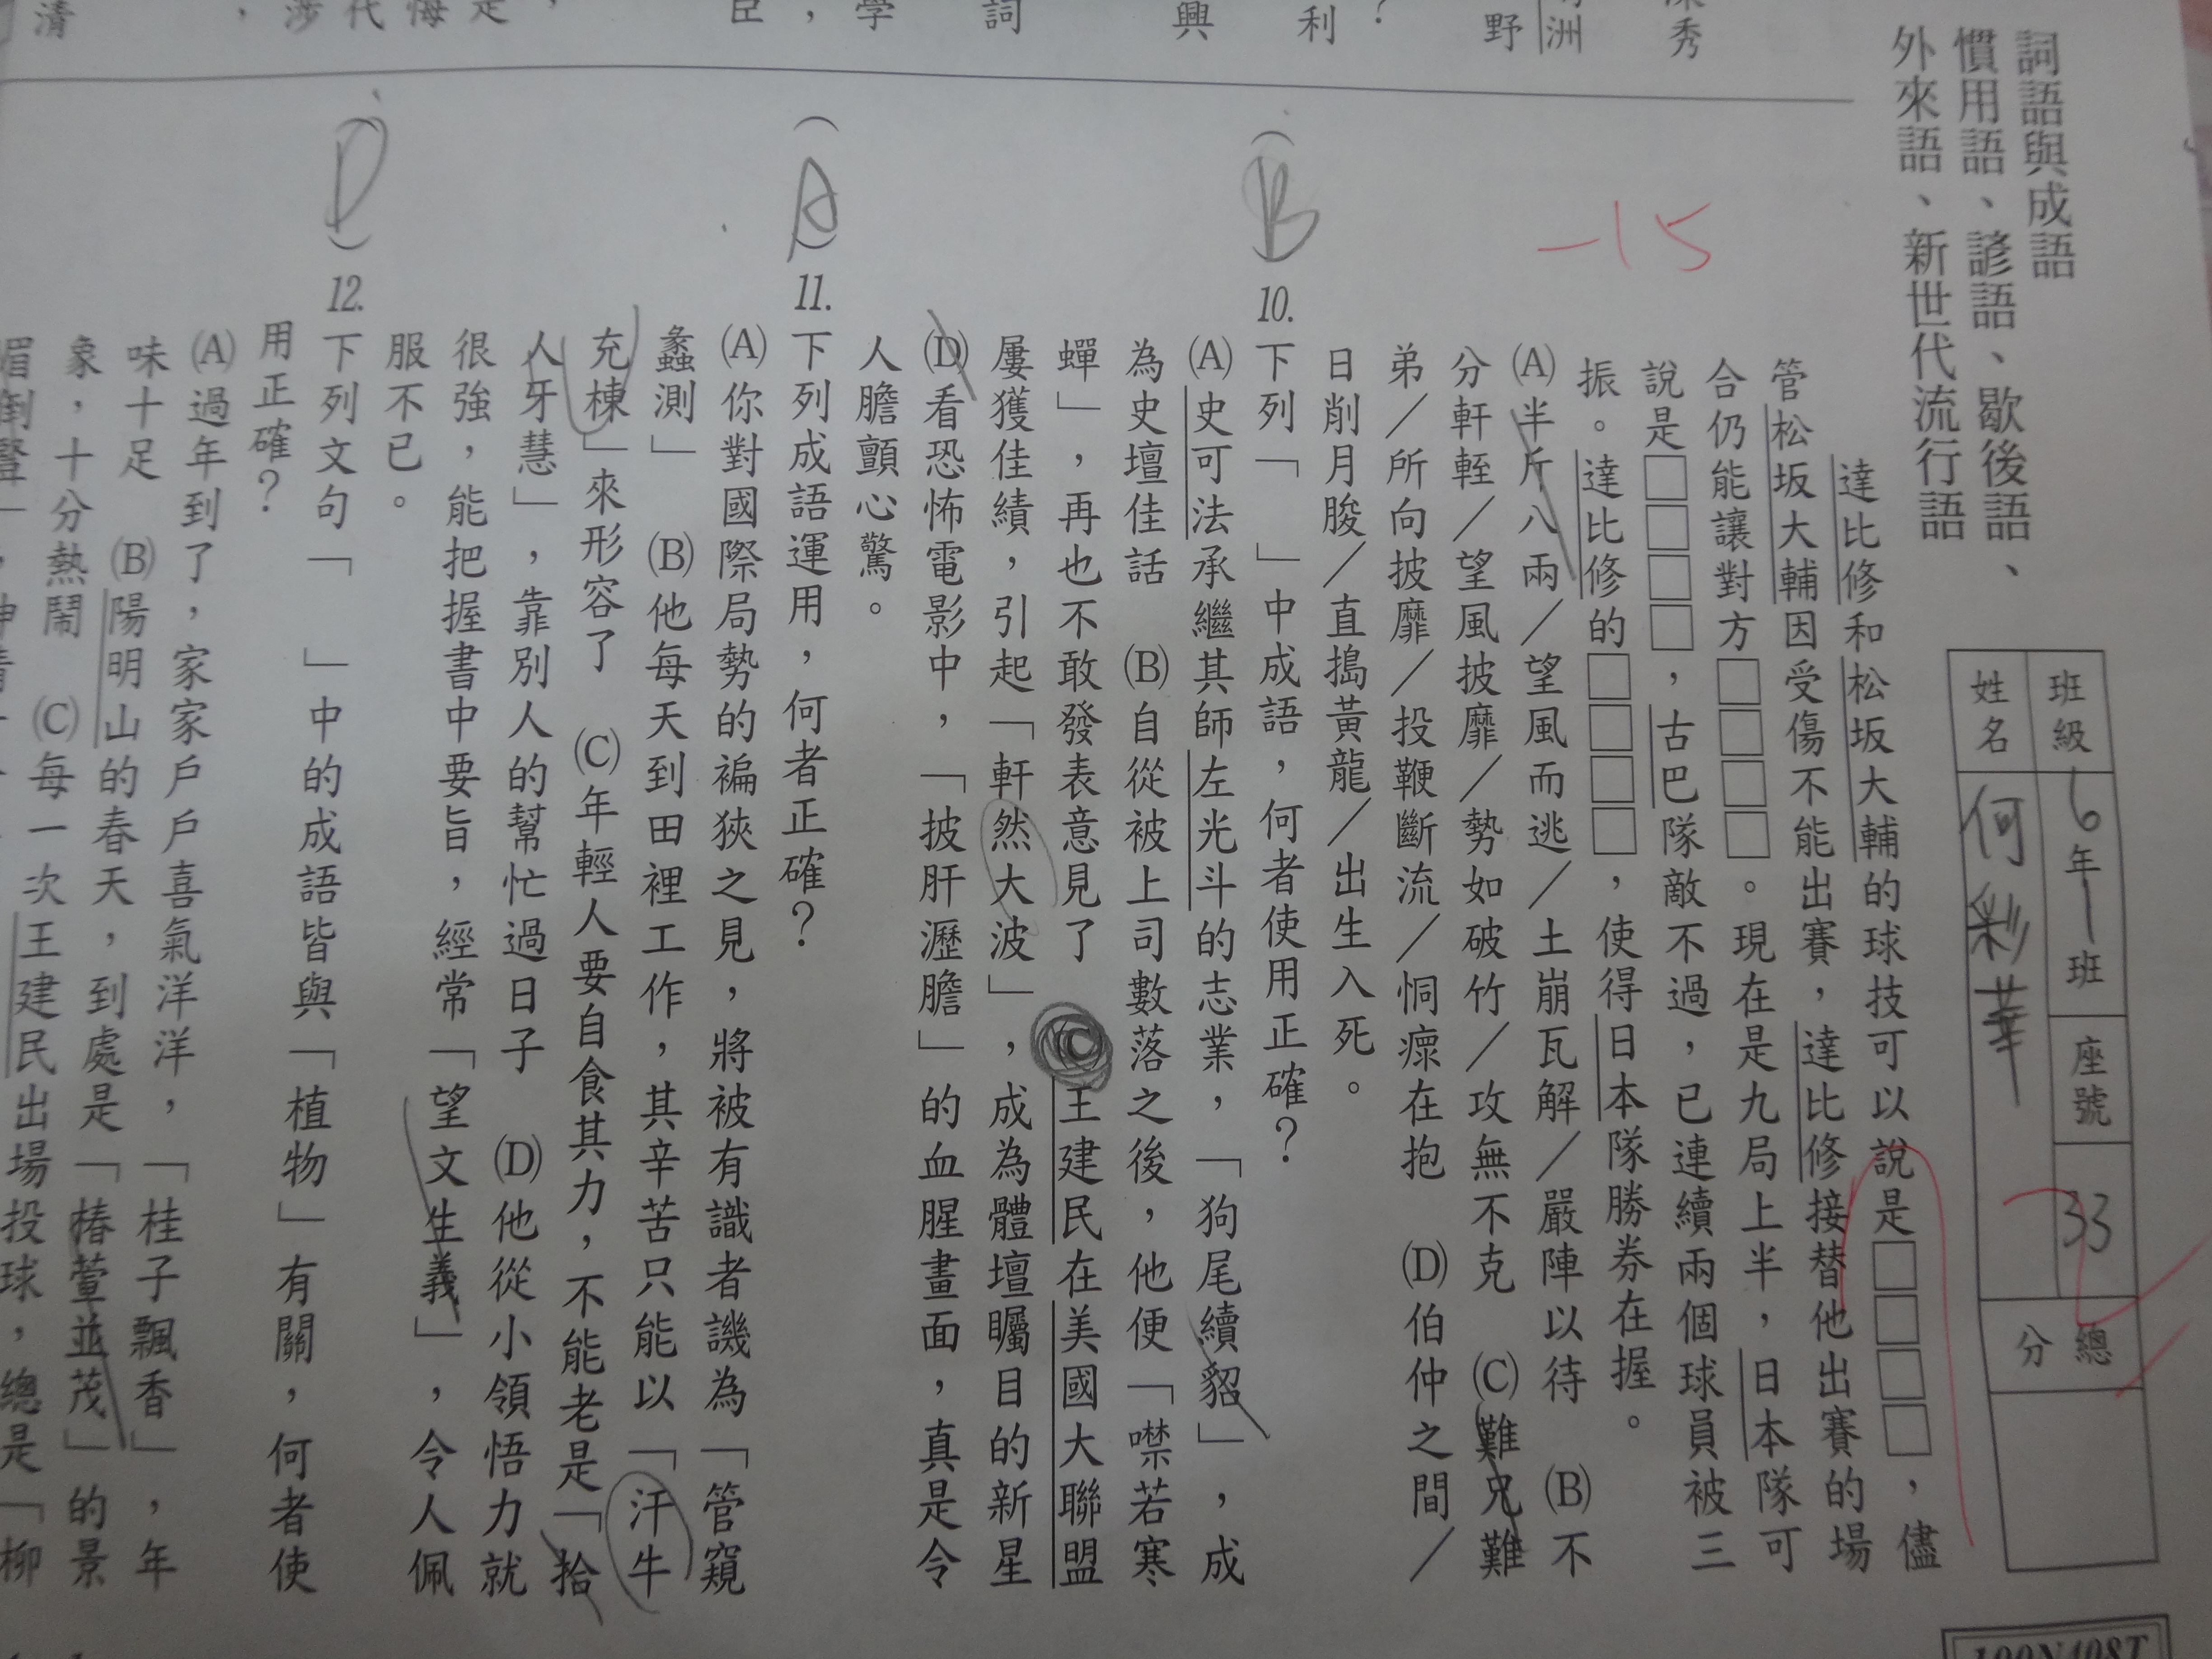 詞語與成語
慣用語、諺語、歇後語、
外來語、新世代流行語
班級 6年1班 座號 33 總分
姓名 何彩華
-15
達比修和松坂大輔的球技可以說是□□□□，儘
管松坂大輔因受傷不能出賽，達比修接替他出賽的場
合仍能讓對方□□□□。現在是九局上半，日本隊可
說是□□□□，古巴隊敵不過，已連續兩個球員被三
振。達比修的□□□□，使得日本隊勝券在握。
(A)半斤八兩／望風而逃／土崩瓦解／嚴陣以待 (B)不
分軒輊／望風披靡／勢如破竹／攻無不克 (C)難兄難
弟／所向披靡／投鞭斷流／恫瘝在抱 (D)伯仲之間／
日削月朘／直搗黃龍／出生入死。
(B)10.下列「 」中成語，何者使用正確？
(A)史可法承繼其師左光斗的志業，「狗尾續貂」，成
為史壇佳話 (B)自從被上司數落之後，他便「噤若寒
蟬」，再也不敢發表意見了 (C)王建民在美國大聯盟
屢獲佳績，引起「軒然大波」，成為體壇矚目的新星
(D)看恐怖電影中，「披肝瀝膽」的血腥畫面，真是令
人膽顫心驚。
(A)11.下列成語運用，何者正確？
(A)你對國際局勢的褊狹之見，將被有識者譏為「管窺
蠡測」 (B)他每天到田裡工作，其辛苦只能以「汗牛
充棟」來形容了 (C)年輕人要自食其力，不能老是「拾
人牙慧」，靠別人的幫忙過日子 (D)他從小領悟力就
很強，能把握書中要旨，經常「望文生義」，令人佩
服不已。
(D)12.下列文句「 」中的成語皆與「植物」有關，何者使
用正確？
(A)過年到了，家家戶戶喜氣洋洋，「桂子飄香」，年
味十足 (B)陽明山的春天，到處是「椿萱並茂」的景
象，十分熱鬧 (C)每一次王建民出場投球，總是「柳
秀
洲
野
？
利
興
詞
學
，
臣
清